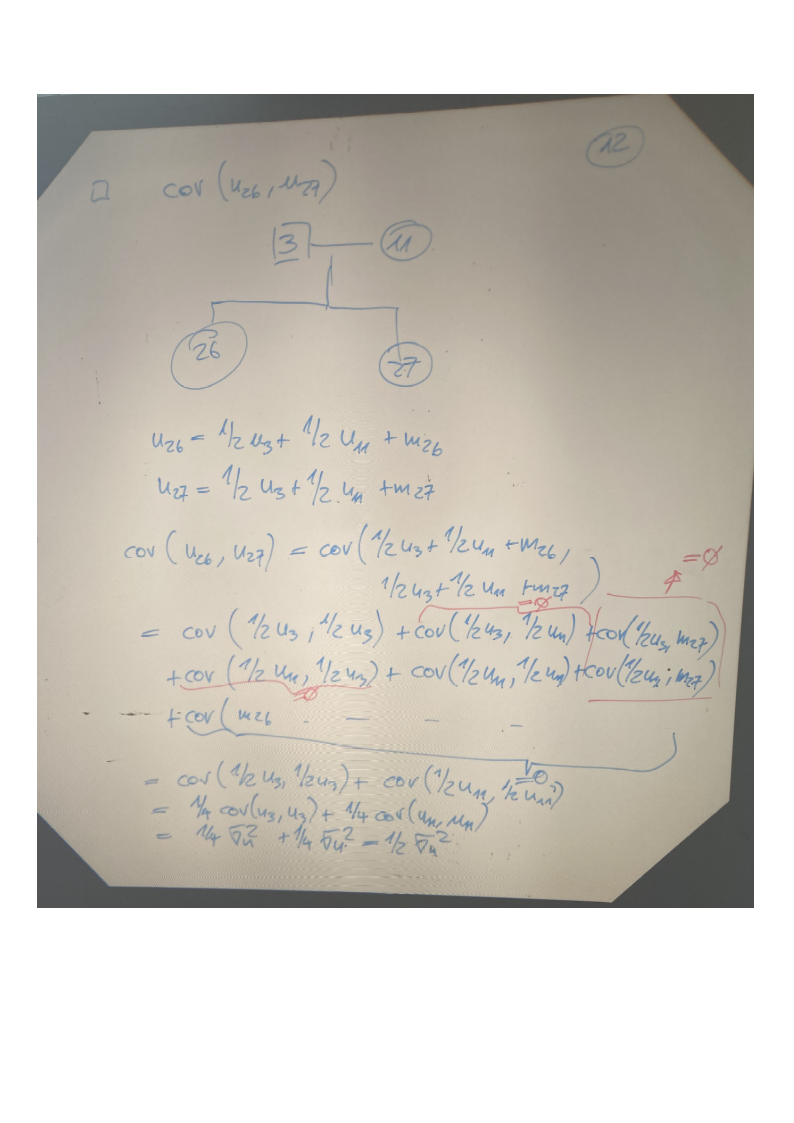 12
□ cov (u26, u27)
3 11
26 27
u26 = 1/2 u3 + 1/2 u11 + m26
u27 = 1/2 u3 + 1/2 u11 + m27
cov (u26, u27) = cov (1/2 u3 + 1/2 u11 + m26,
= ∅
1/2 u3 + 1/2 u11 + m27)
= ∅
= cov (1/2 u3, 1/2 u3) + cov (1/2 u3, 1/2 u11) + cov (1/2 u3, m27)
+ cov (1/2 u11, 1/2 u3) + cov (1/2 u11, 1/2 u11) + cov (1/2 u11, m27)
∅
+ cov (m26 - - -
= 0
= cov (1/2 u3, 1/2 u3) + cov (1/2 u11, 1/2 u11)
= 1/4 cov (u3, u3) + 1/4 cov (u11, u11)
= 1/4 σu² + 1/4 σu² = 1/2 σu²